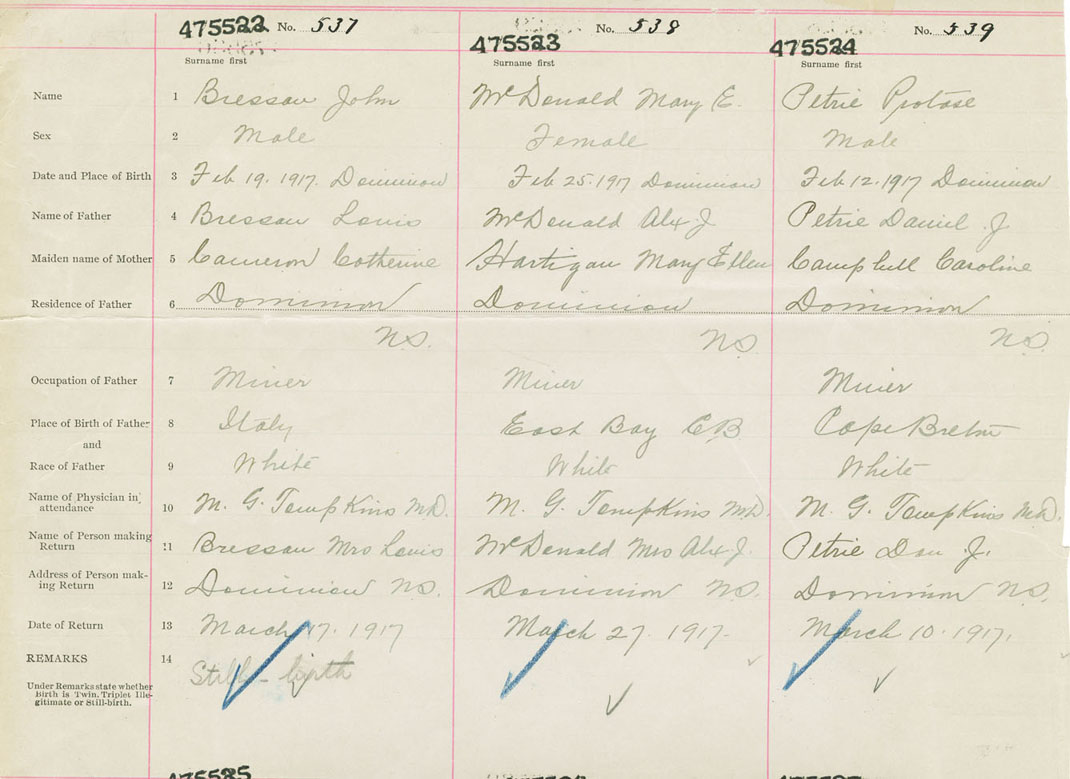 475522 No. 537 475523 No. 538 475524 No. 539
Surname first Surname first Surname first
Name 1 Bressan John McDonald Mary E. Petrie Protase
Sex 2 Male Female Male
Date and Place of Birth 3 Feb 19. 1917. Dominion Feb 25. 1917 Dominion Feb 12. 1917 Dominion
Name of Father 4 Bressan Louis McDonald Alex J Petrie Daniel J
Maiden name of Mother 5 Cameron Catherine Hartigan Mary Ellen Campbell Caroline
Residence of Father 6 Dominion Dominion Dominion
N.S. N.S. N.S.
Occupation of Father 7 Miner Miner Miner
Place of Birth of Father 8 Italy East Bay C B Cape Breton
and
Race of Father 9 White White White
Name of Physician in
attendance 10 M. G. Tompkins M.D. M. G. Tompkins M.D. M. G. Tompkins M.D.
Name of Person making
Return 11 Bressan Mrs Louis McDonald Mrs Alex J. Petrie Dan J.
Address of Person mak-
ing Return 12 Dominion N.S. Dominion N.S. Dominion N.S.
Date of Return 13 March 17. 1917 March 27. 1917. March 10. 1917.
REMARKS 14 Still-birth
Under Remarks state whether
Birth is Twin, Triplet Ille-
gitimate or Still-birth.
475525